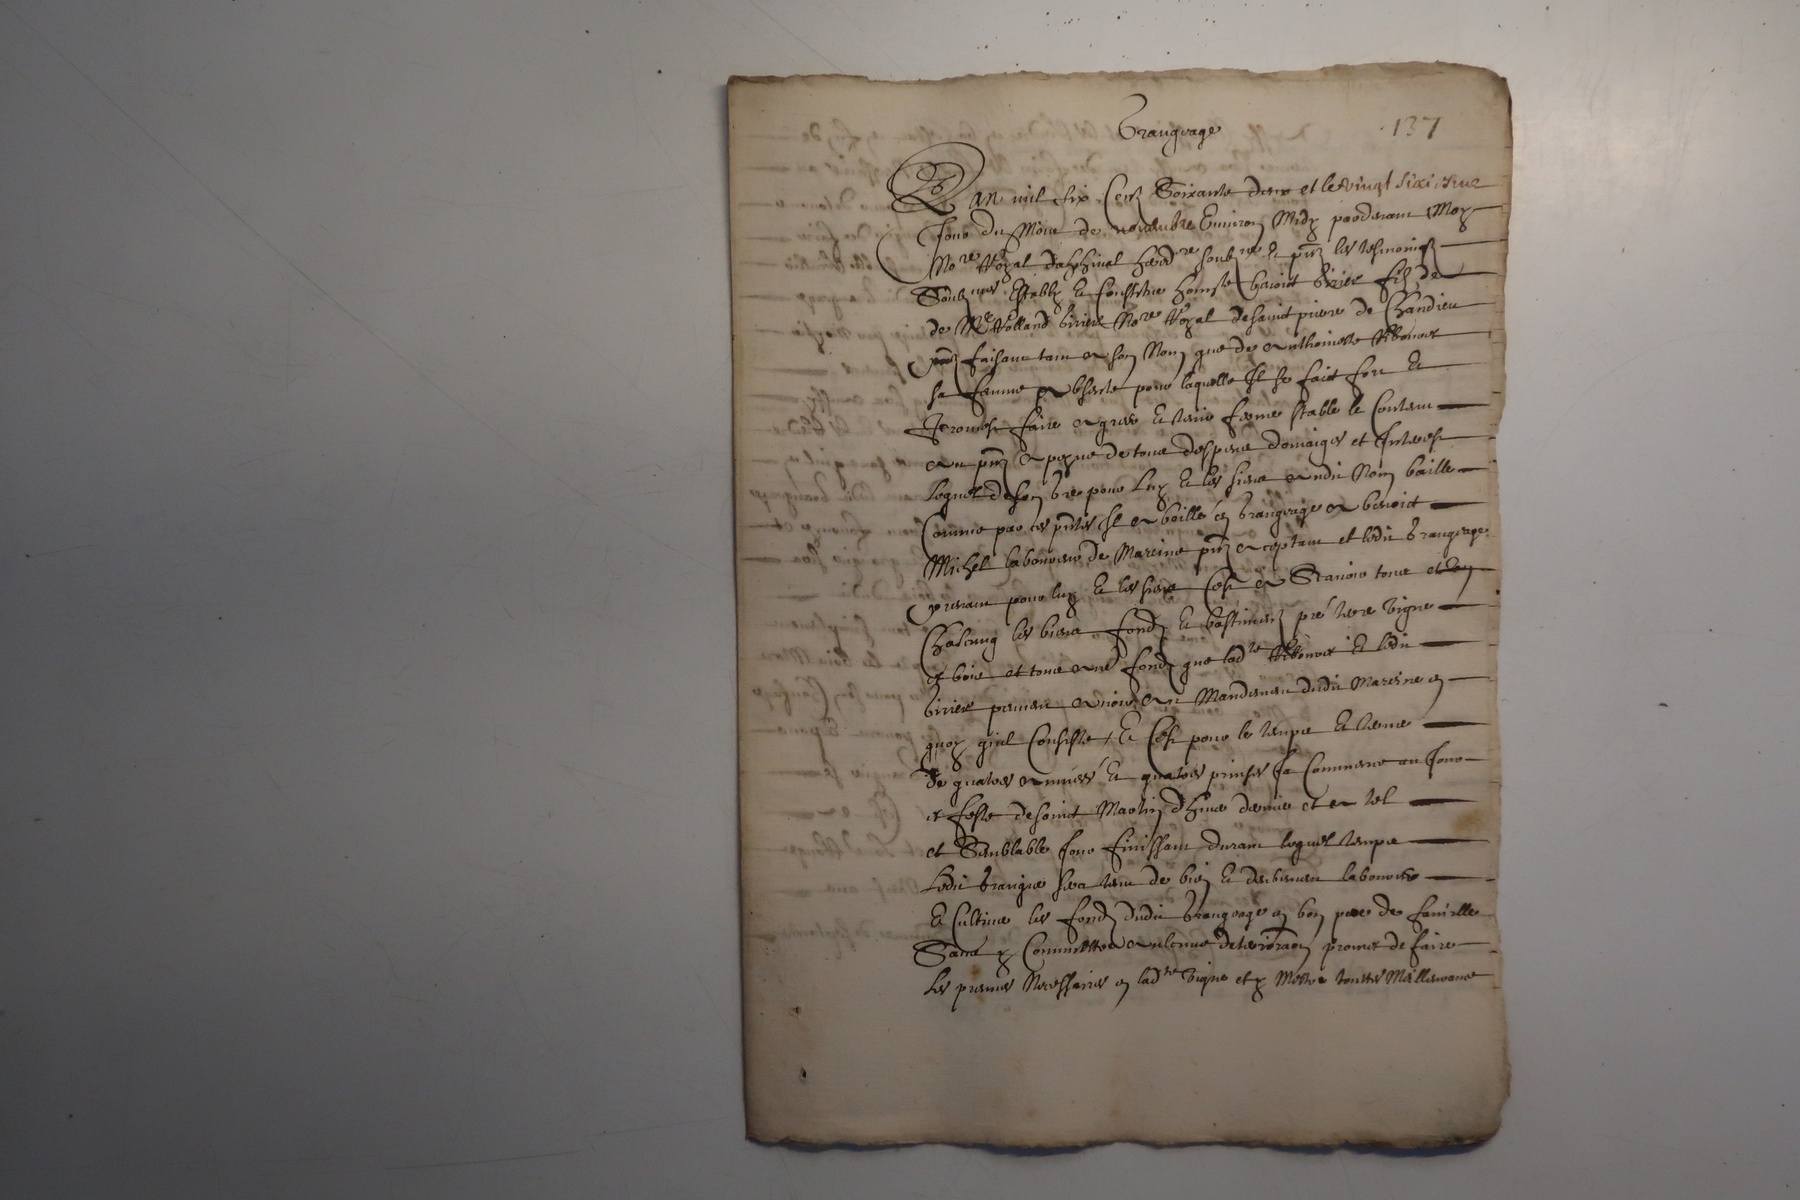 Grangeage
137
Lan mil six Cens Soixante deux et le vingt sixiesme
Jour du Mois de novembre Environ Midy pardevant Moy
No.re Royal dalphinal hered.re soubz.ne et pntz les tesmoingz
Soubz nes Estably et Constitue honeste benoict filz de
de M.e Rolland No.re Royal de sainct pierre de Chandieu
faisant tant a son Nom que de anthoinette
sa femme absente pour laquelle Il se faict fort et
promest faire agreer et tenir ferme stable le Contenu
au pnt a peyne de tous despens domaiges et Interest
lequel de son gre pour Luy et les siens audit Nom baille
Comme par ces pntes Il a baillé en Grangeage a benoict
Michel laboureur de Marcine pnt acceptant et ledit Grangeage
prenant pour luy et les siens Cest a Scavoir tous et
Chascung les biens fondz et bastiment pré terre Vigne
bois et tous aue fondz que lad.te et ledit
peuvent avoir au Mandement dudit Marcine en
quoy quil Consiste, Et Cest pour le temps et terme
de quatre année et quatre prinses Ja Commencé au Jour
et feste de sainct Martin dhiver dernier et a tel
et Semblable Jour finissant durant lequel temps
Ledit Granger sera tenu de bien et deubement labourer
Et Cultiver les fondz dudit Grangeage en bon pere de famille
Sans y Commettre aulcune deterioraon promet de faire
Les Necessaires en lad.te Vigne et y Mettre touttes